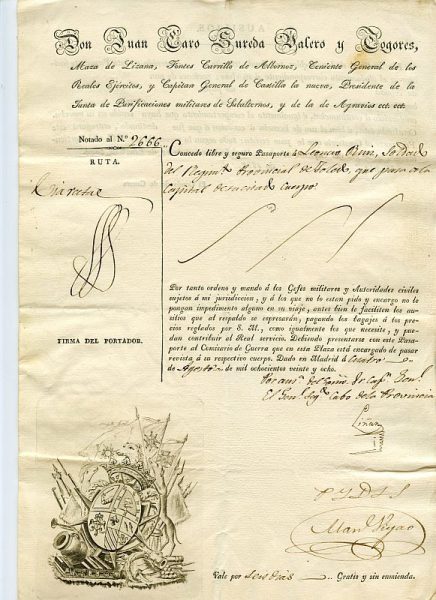 Don Juan Caro Sureda Valero y Togores,
Maza de Lizana, Fontes Carrillo de Albornoz, Teniente General de los
Reales Ejércitos, y Capitan General de Castilla la nueva, Presidente de la
Junta de Purificaciones militares de Subalternos, y de la de Agravios ect. ect.
Notado al N.º 2666
RUTA.
FIRMA DEL PORTADOR.
Concedo libre y seguro Pasaporte á Leoncio Ruiz, Soldado
del Regim.to Provincial de Toledo, que pasa a la
Capital de su Cuerpo
Por tanto ordeno y mando á los Gefes militares y Autoridades civiles
sujetos á mi jurisdiccion, y á los que no lo estan pido y encargo no le
pongan impedimento alguno en su viaje, antes bien le faciliten los au-
silios que al respaldo se espresarán, pagando los bagajes á los pre-
cios reglados por S. M., como igualmente los que necesite, y pue-
dan contribuir al Real servicio. Debiendo presentarse con este Pasa-
porte al Comisario de Guerra que en esta Plaza está encargado de pasar
revista á su respectivo cuerpo. Dado en Madrid á cuatro
de Agosto de mil ochocientos veinte y ocho.
Por aus.a del Cap.n Gen.l
El Gen.l Seg.do Cabo de la Provincia
Liñan
P. Y. D. S. S.
Vale por seis dias Gratis y sin enmienda.